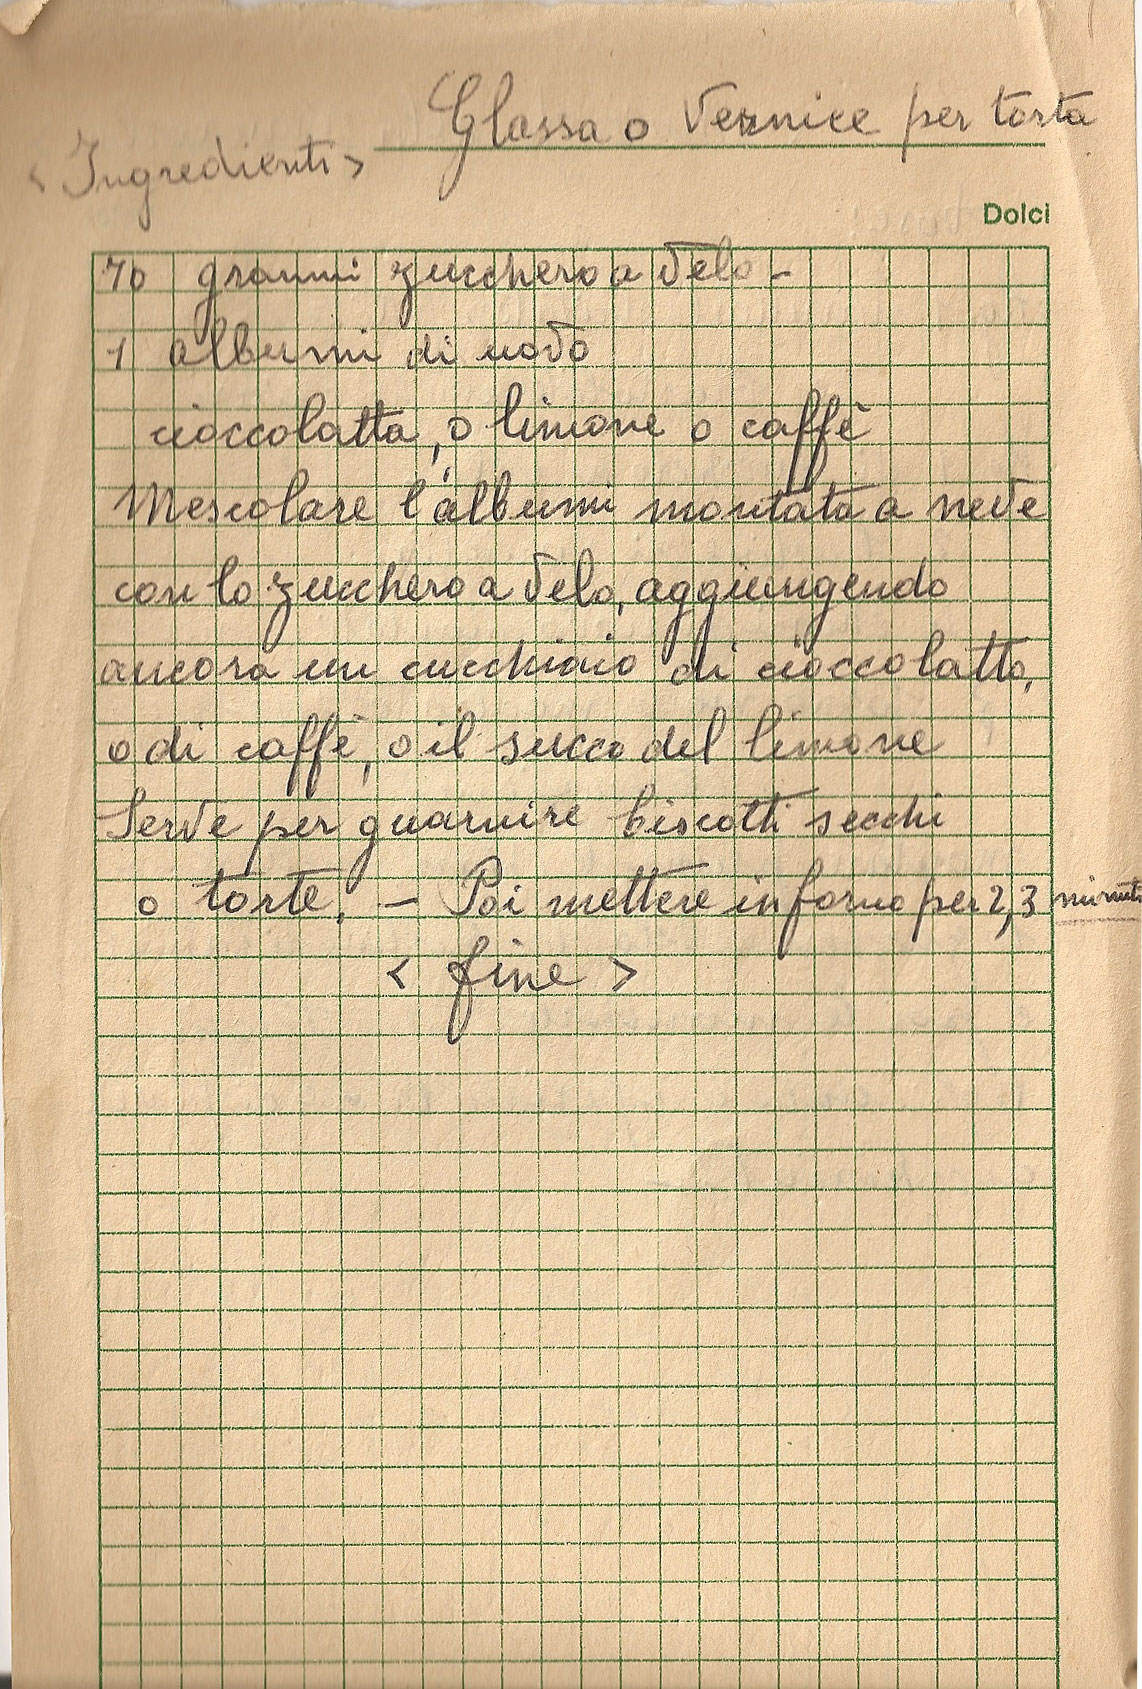 Glassa o Vernice per torta
< Ingredienti >
Dolci
70 grammi zucchero a velo -
1 albumi di uovo
cioccolatta, o limone o caffè
Mescolare l'albumi montata a neve
con lo zucchero a velo, aggiungendo
ancora un cucchiaio di cioccolatto,
o di caffè, o il succo del limone
Serve per guarnire biscotti secchi
o torte. - Poi mettere in forno per 2,3 minuti
< fine >